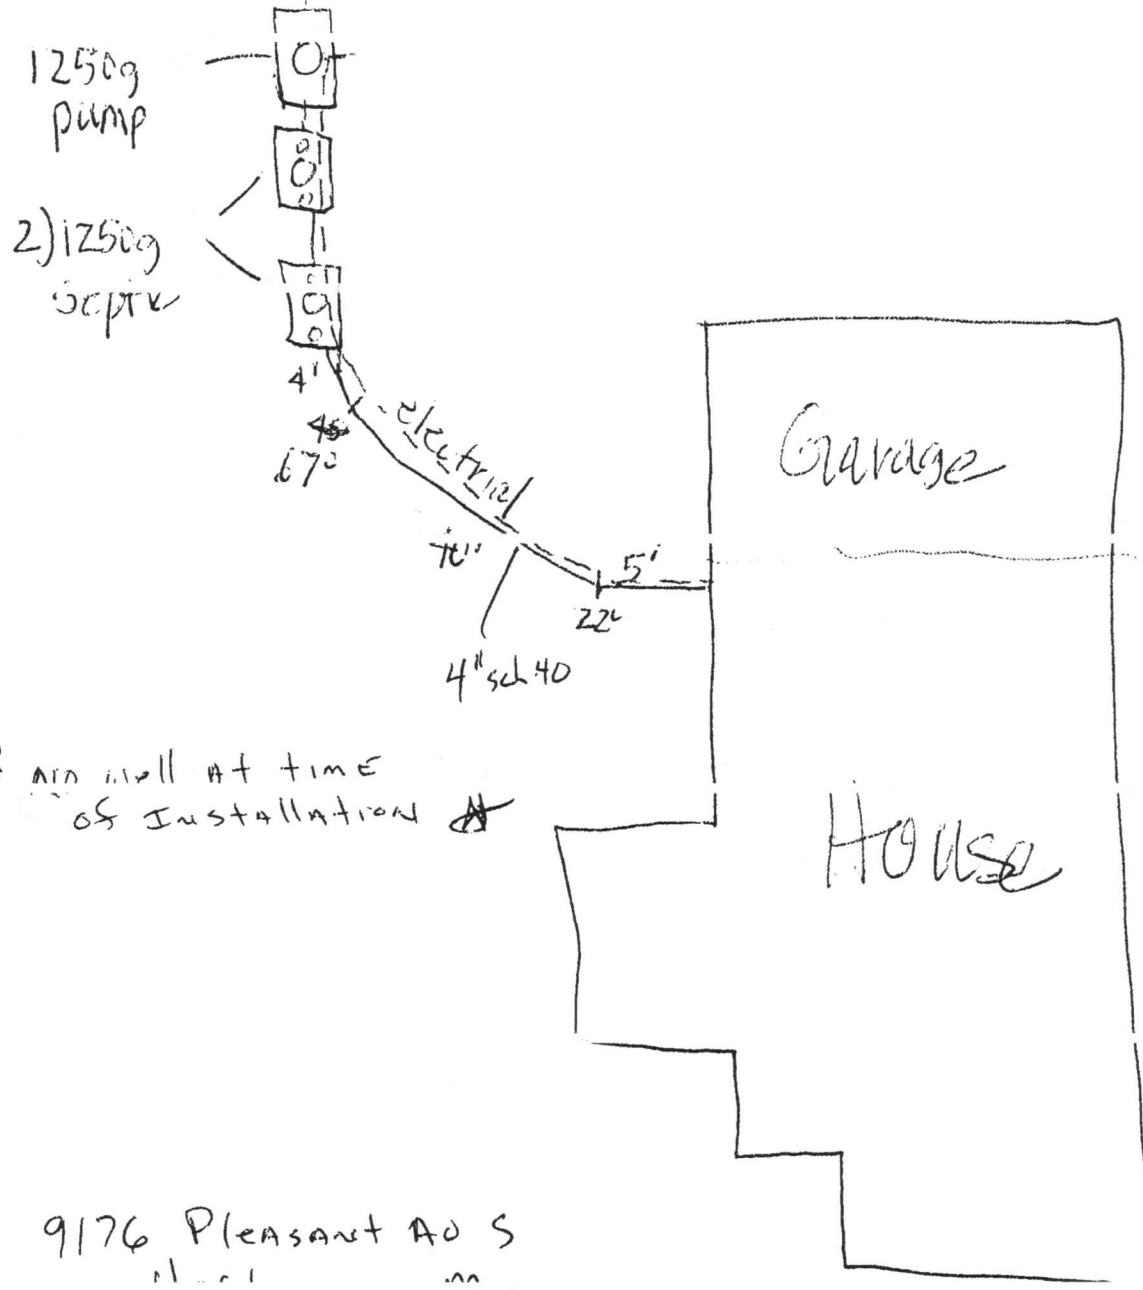 1250g
pump
2) 1250g
Septic
4'
67°
electrical
5'
22°
4" sch 40
Garage
House
no well At time
of Installation
9176 Pleasant Av S